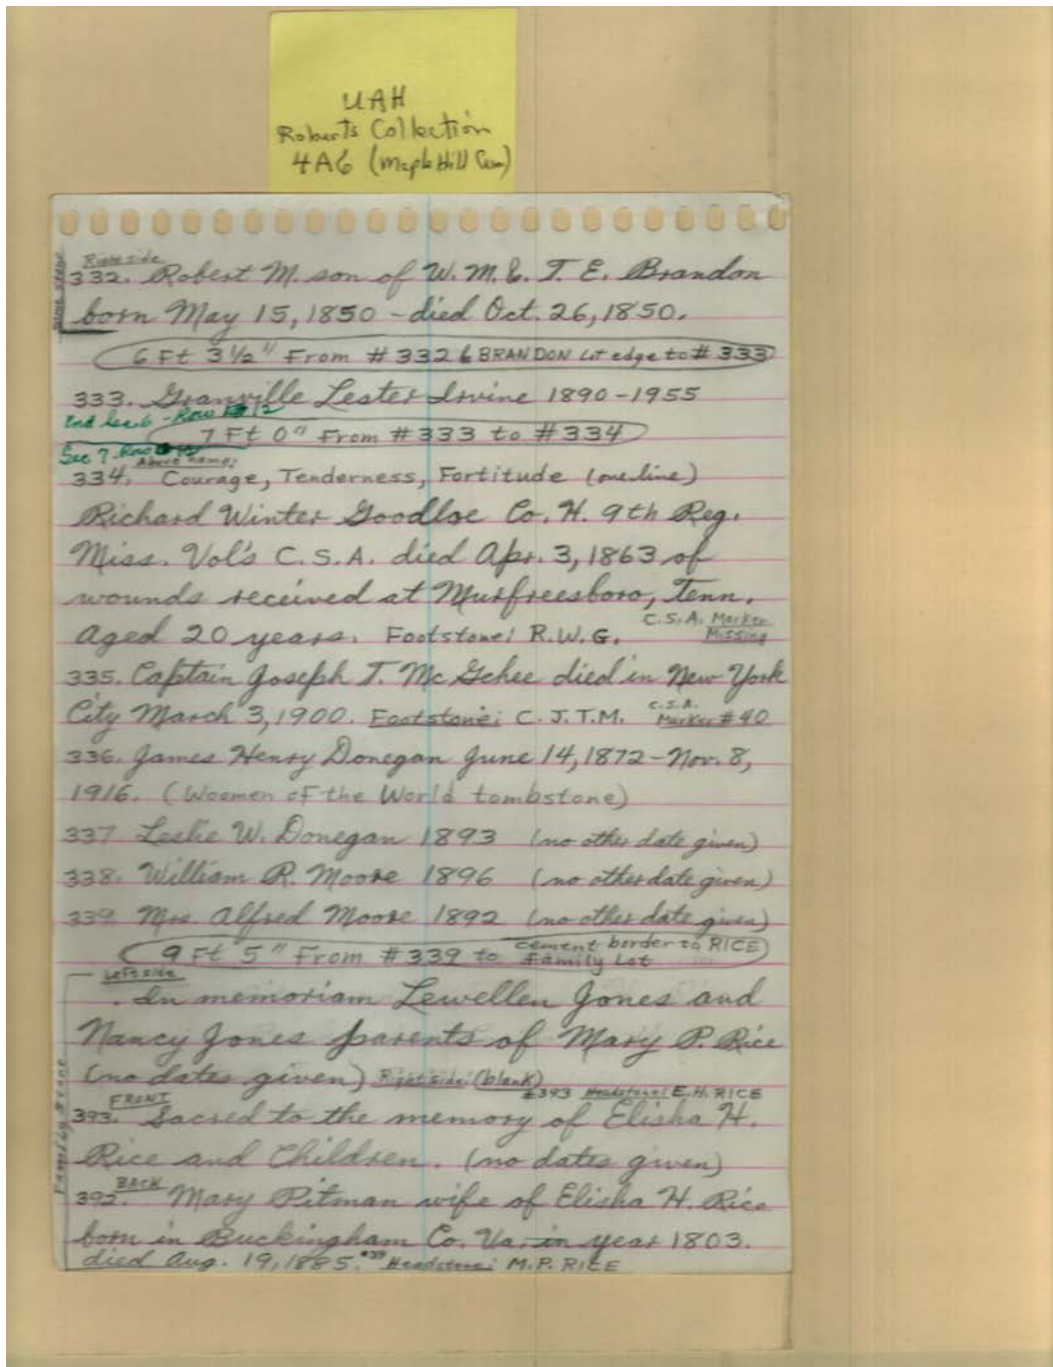 UAH
Roberts Collection
4A6 (Maple Hill Cem)
Right side
332. Robert M. son of W. M. & T. E. Brandon
born May 15, 1850 - died Oct. 26, 1850.
6 Ft 3 1/2" From # 332 & BRANDON Lot edge to # 333
333. Granville Lester Irvine 1890-1955
End Sec 6 - Row 12
7 Ft 0" From # 333 to # 334
Sec 7. Row
Above name:
334. Courage, Tenderness, Fortitude (one line)
Richard Winter Goodloe Co. H. 9th Reg.
Miss. Vol's C.S.A. died Apr. 3, 1863 of
wounds received at Murfreesboro, Tenn.
aged 20 years. Footstone: R.W.G. C.S.A. Marker Missing
335. Captain Joseph T. McGehee died in New York
City March 3, 1900. Footstone: C. J. T. M. C.S.A. Marker # 40
336. James Henry Donegan June 14, 1872 - Nov. 8,
1916. (Woomen of the World tombstone)
337 Leslie W. Donegan 1893 (no other date given)
338. William R. Moore 1896 (no other date given)
339 Mrs Alfred Moore 1892 (no other date given)
9 Ft 5" From # 339 to cement border to RICE Family Lot
Left side
. In memoriam Lewellen Jones and
Nancy Jones parents of Mary P. Rice
(no dates given) Right side: (blank)
#393 Headstone: E. H. RICE
FRONT
393. Sacred to the memory of Elisha H.
Rice and Children. (no dates given)
BACK
392. Mary Pitman wife of Elisha H. Rice
born in Buckingham Co. Va. in year 1803.
died Aug. 19, 1885. Headstone: M.P. RICE